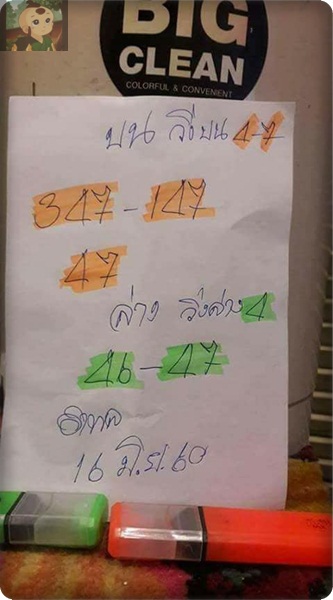 BIG
CLEAN
COLORFUL & CONVENIENT
บน วิ่งบน 4-7
347-147
47
ล่าง วิ่งล่าง 4
46-47
16 มิ.ย.60